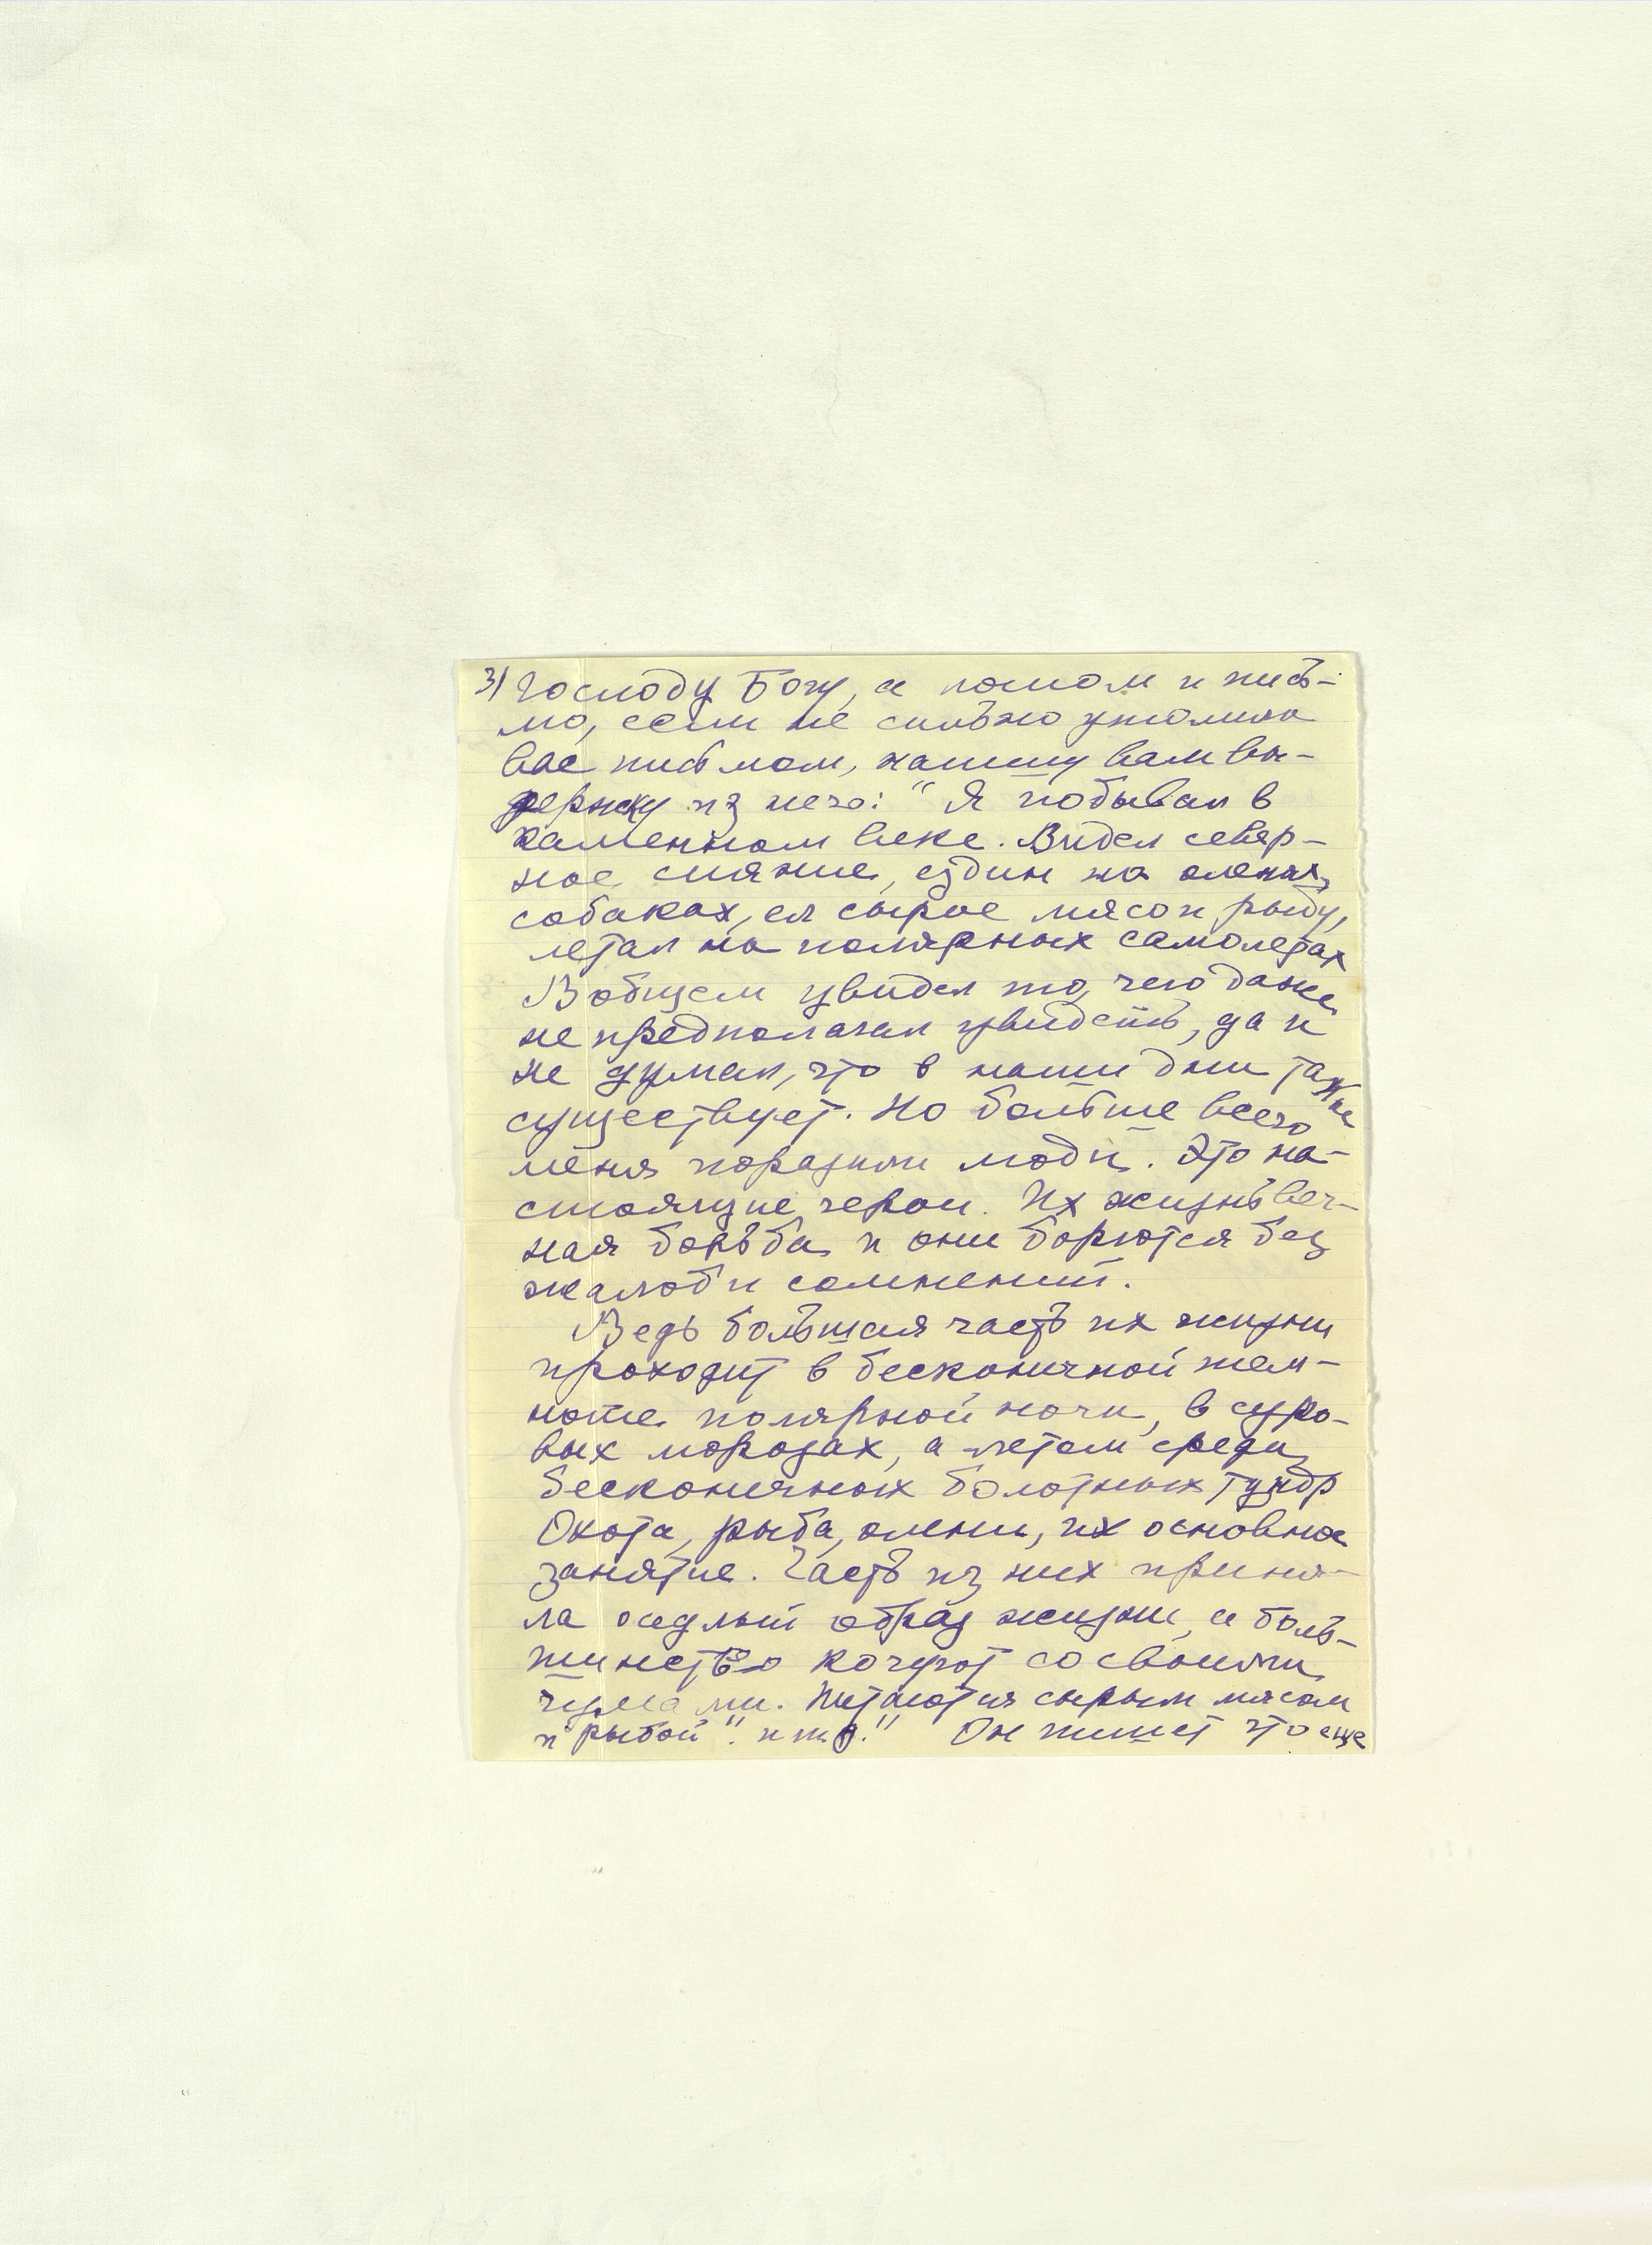 3) Господу Богу, а потом и пись-
мо, если не сильно утомила
вас письмом, напишу вам вы-
держку из него: "Я побывал в
каменном веке. Видел север-
ное сияние, ездил на оленях,
собаках, ел сырое мясо и рыбу,
летал на полярных самолетах
В общем увидел то, чего даже
не предполагал увидеть, да и
не думал, что в наши дни такое
существует. Но больше всего
меня поразили люди. Это на-
стоящие герои. Их жизнь веч-
ная борьба и они борются без
жалоб и сомнений.
Ведь большая часть их жизни
проходит в бесконечной тем-
ноте полярной ночи, в суро-
вых морозах, а летом среди
бесконечных болотных тундр
Охота, рыба, олени, их основное
занятие. Часть из них приня-
ла оседлый образ жизни, а боль-
шинство кочуют со своими
чумами. Питаются сырым мясом
и рыбой". и т.д." Он пишет что еще